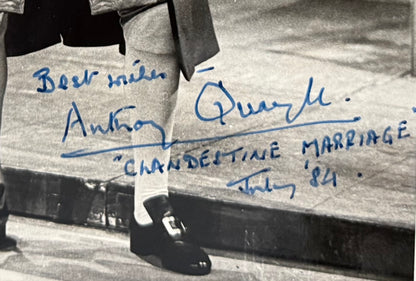 Best wishes –
Anthony Quayle.
"CLANDESTINE MARRIAGE"
July '84.